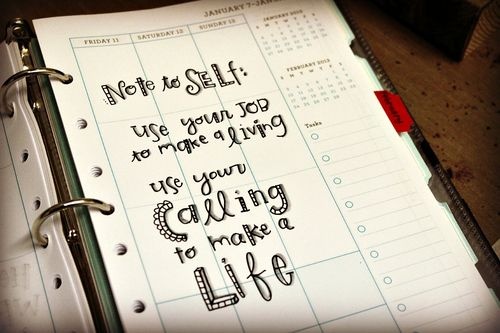 JANUARY 7-JAN
FRIDAY 11 SATURDAY 12 SUNDAY 13
JANUARY 2013
S M T W T F S
FEBRUARY 2013
S M T W T F S
Note to SELF:
use your JOB
to make a living
use your
Calling
to make a
Life
Tasks